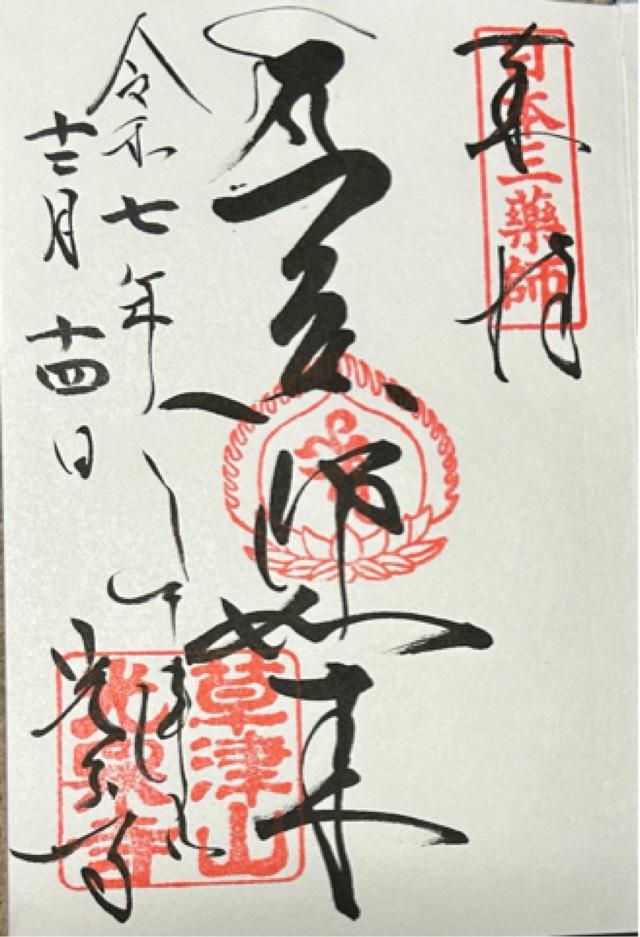 奉拝
日本三薬師
師如来
草津山
光泉寺
令和七年
十二月十四日
光泉寺